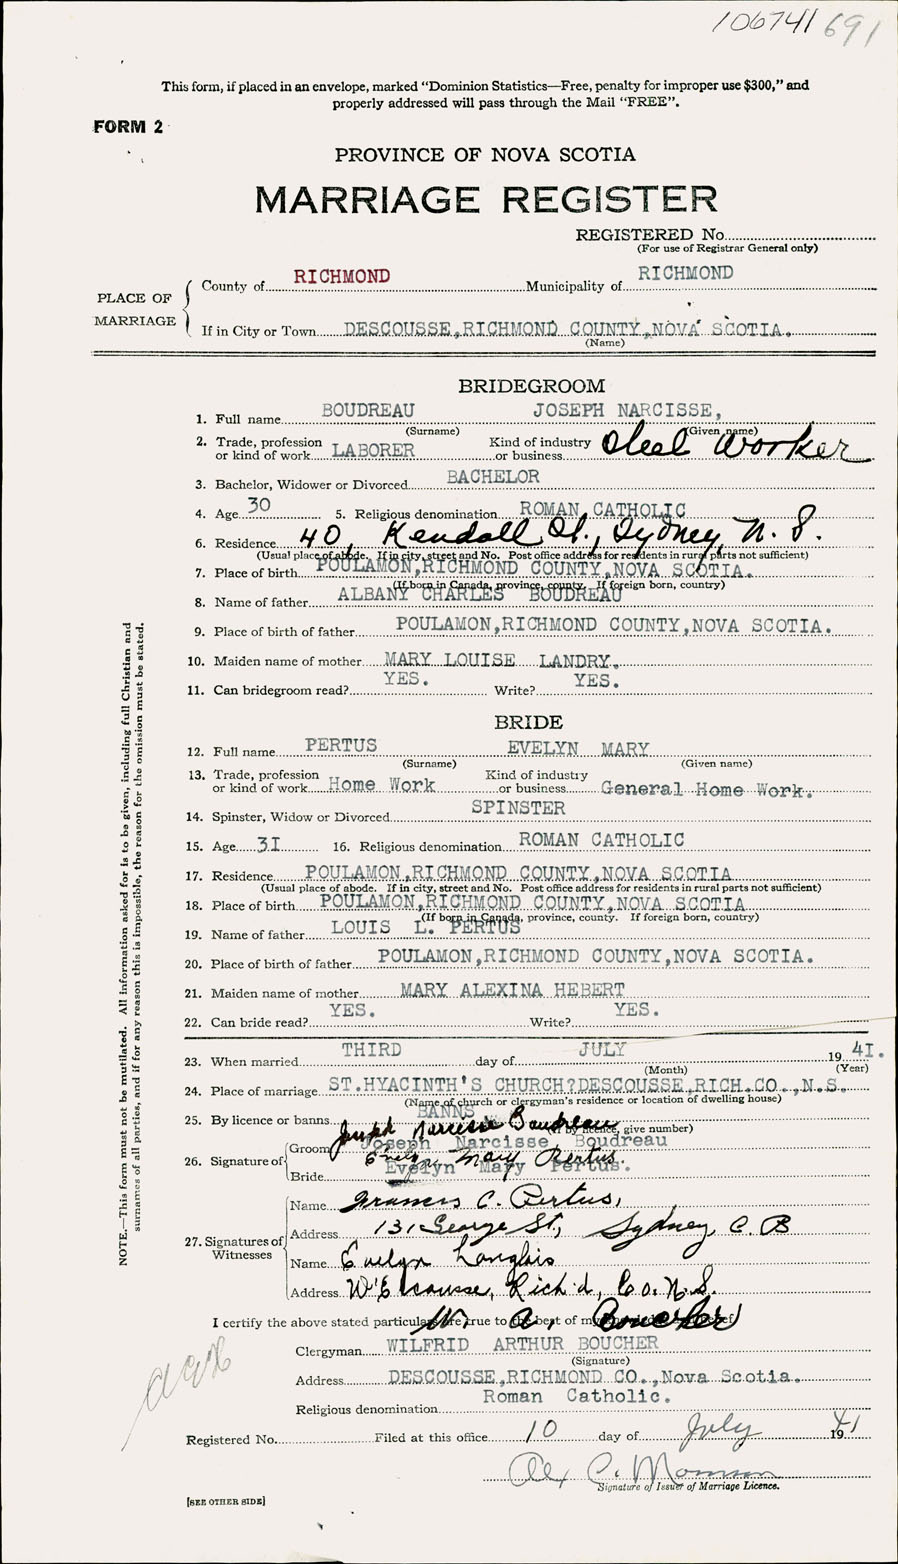 106741 691
This form, if placed in an envelope, marked "Dominion Statistics—Free, penalty for improper use $300," and
properly addressed will pass through the Mail "FREE".
FORM 2
PROVINCE OF NOVA SCOTIA
MARRIAGE REGISTER
REGISTERED No.
(For use of Registrar General only)
PLACE OF MARRIAGE
County of RICHMOND Municipality of RICHMOND
If in City or Town DESCOUSSE,RICHMOND COUNTY,NOVA SCOTIA.
(Name)
BRIDEGROOM
1. Full name BOUDREAU JOSEPH NARCISSE,
(Surname) (Given name)
2. Trade, profession or kind of work LABORER Kind of industry or business Steel Worker
3. Bachelor, Widower or Divorced BACHELOR
4. Age 30 5. Religious denomination ROMAN CATHOLIC
6. Residence 40, Kendall St., Sydney, N. S.
(Usual place of abode. If in city, street and No. Post office address for residents in rural parts not sufficient)
7. Place of birth POULAMON,RICHMOND COUNTY,NOVA SCOTIA.
(If born in Canada, province, county. If foreign born, country)
8. Name of father ALBANY CHARLES BOUDREAU
9. Place of birth of father POULAMON,RICHMOND COUNTY,NOVA SCOTIA.
10. Maiden name of mother MARY LOUISE LANDRY.
11. Can bridegroom read? YES. Write? YES.
BRIDE
12. Full name PERTUS EVELYN MARY
(Surname) (Given name)
13. Trade, profession or kind of work Home Work Kind of industry or business General Home Work.
14. Spinster, Widow or Divorced SPINSTER
15. Age 3I 16. Religious denomination ROMAN CATHOLIC
17. Residence POULAMON,RICHMOND COUNTY,NOVA SCOTIA
(Usual place of abode. If in city, street and No. Post office address for residents in rural parts not sufficient)
18. Place of birth POULAMON,RICHMOND COUNTY,NOVA SCOTIA
(If born in Canada, province, county. If foreign born, country)
19. Name of father LOUIS L. PERTUS
20. Place of birth of father POULAMON,RICHMOND COUNTY,NOVA SCOTIA.
21. Maiden name of mother MARY ALEXINA HEBERT
22. Can bride read? YES. Write? YES.
23. When married THIRD day of JULY 19 4I.
(Month) (Year)
24. Place of marriage ST.HYACINTH'S CHURCH?DESCOUSSE,RICH.CO.,N.S.
(Name of church or clergyman's residence or location of dwelling house)
25. By licence or banns BANNS
(If by licence, give number)
26. Signature of
Groom Joseph Narcisse Boudreau
Joseph Narcisse Boudreau
Bride Evelyn Mary Pertus.
Evelyn Mary Pertus.
27. Signatures of Witnesses
Name Francis C. Pertus,
Address 131 George St, Sydney C. B
Name Evelyn Langlois
Address Rich'd, Co. N.S.
I certify the above stated particulars are true to the best of my knowledge and belief
W. A. Boucher
Clergyman WILFRID ARTHUR BOUCHER
(Signature)
Address DESCOUSSE,RICHMOND CO.,Nova Scotia.
Religious denomination Roman Catholic.
Registered No. Filed at this office 10 day of July 1941
Signature of Issuer of Marriage Licence.
[SEE OTHER SIDE]
NOTE.—This form must not be mutilated. All information asked for is to be given, including full Christian and
surnames of all parties, and if for any reason this is impossible, the reason for the omission must be stated.